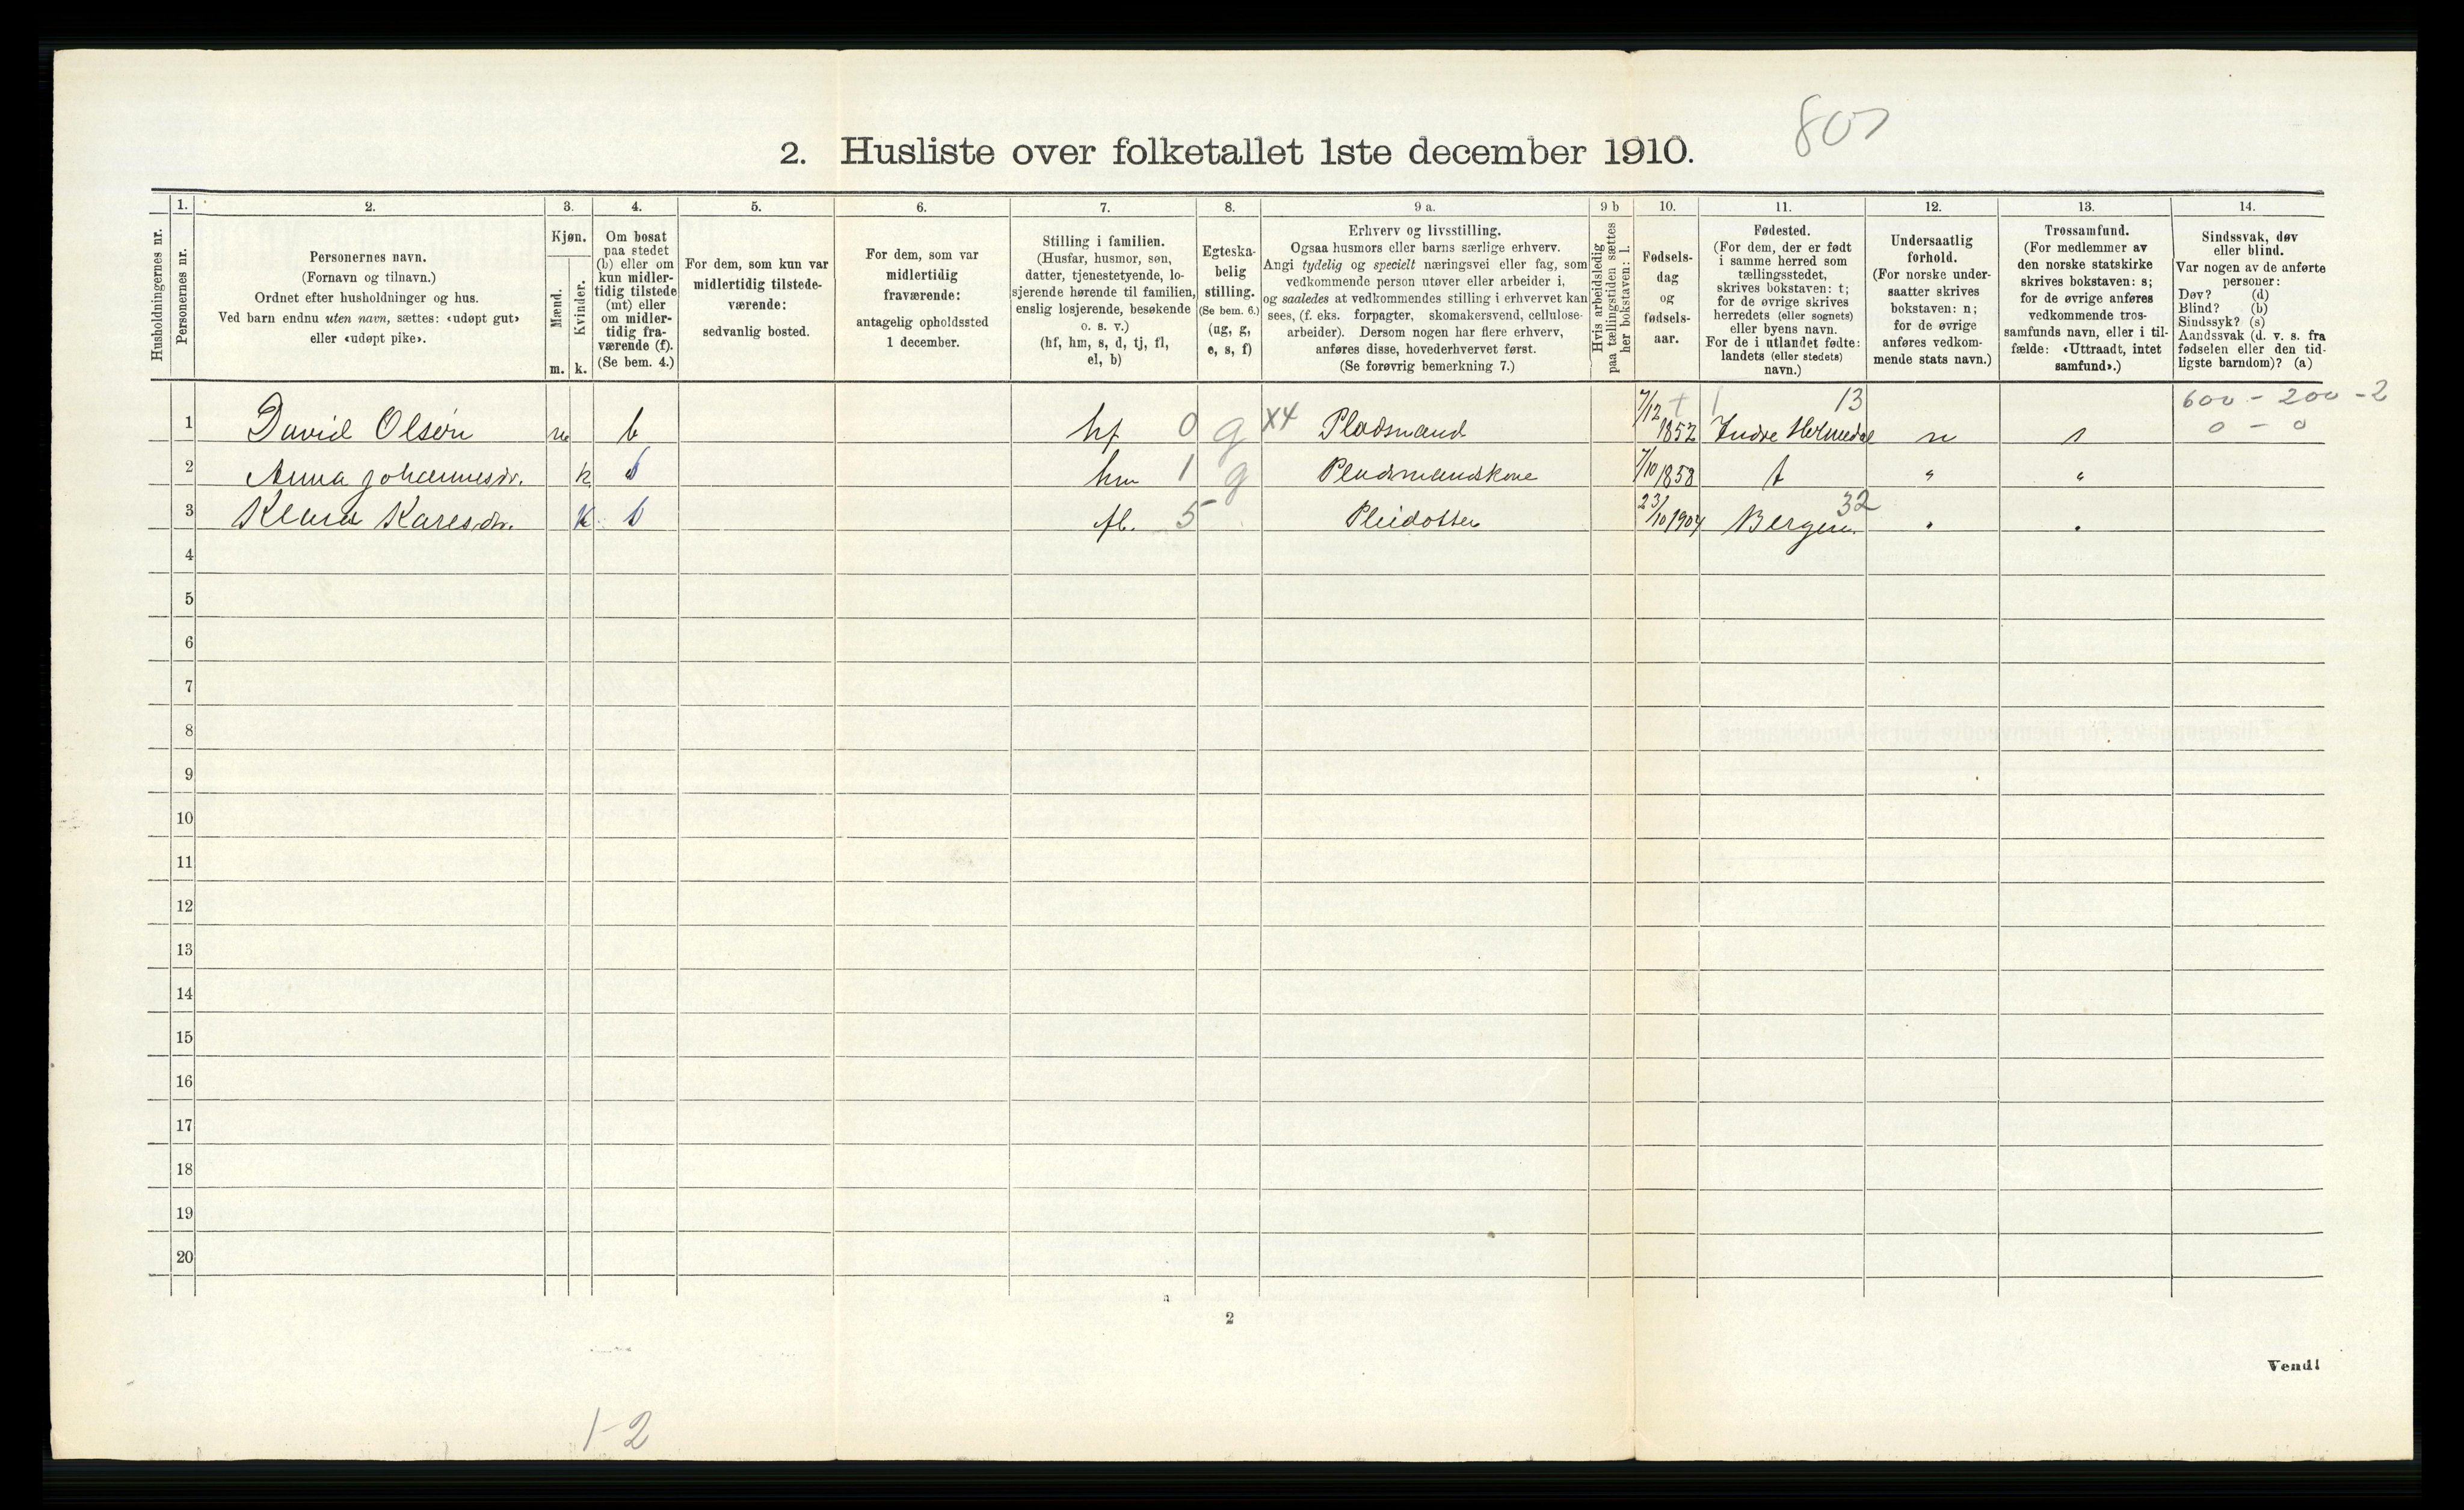 807
2. Husliste over folketallet 1ste december 1910.
Husholdningernes nr.
1.
Personernes nr.
2.
Personernes navn.
(Fornavn og tilnavn.)
Ordnet efter husholdninger og hus.
Ved barn endnu uten navn, sættes: «udøpt gut»
eller «udøpt pike».
3.
Kjøn.
Mænd.
Kvinder.
m. k.
4.
Om bosat
paa stedet
(b) eller om
kun midler-
tidig tilstede
(mt) eller
om midler-
tidig fra-
værende (f).
(Se bem. 4.)
5.
For dem, som kun var
midlertidig tilstede-
værende:
sedvanlig bosted.
6.
For dem, som var
midlertidig
fraværende:
antagelig opholdssted
1 december.
7.
Stilling i familien.
(Husfar, husmor, søn,
datter, tjenestetyende, lo-
sjerende hørende til familien,
enslig losjerende, besøkende
o. s. v.)
(hf, hm, s, d, tj, fl,
el, b)
8.
Egteska-
belig
stilling.
(Se bem. 6.)
(ug, g,
e, s, f)
9 a.
Erhverv og livsstilling.
Ogsaa husmors eller barns særlige erhverv.
Angi tydelig og specielt næringsvei eller fag, som
vedkommende person utøver eller arbeider i,
og saaledes at vedkommendes stilling i erhvervet kan
sees, (f. eks. forpagter, skomakersvend, cellulose-
arbeider). Dersom nogen har flere erhverv,
anføres disse, hovederhvervet først.
(Se forøvrig bemerkning 7.)
9 b
Hvis arbeidsledig
paa tællingstiden sættes
her bokstaven: l.
10.
Fødsels-
dag
og
fødsels-
aar.
11.
Fødested.
(For dem, der er født
i samme herred som
tællingsstedet,
skrives bokstaven: t;
for de øvrige skrives
herredets (eller sognets)
eller byens navn.
For de i utlandet fødte:
landets (eller stedets)
navn.)
12.
Undersaatlig
forhold.
(For norske under-
saatter skrives
bokstaven: n;
for de øvrige
anføres vedkom-
mende stats navn.)
13.
Trossamfund.
(For medlemmer av
den norske statskirke
skrives bokstaven: s;
for de øvrige anføres
vedkommende tros-
samfunds navn, eller i til-
fælde: «Uttraadt, intet
samfund».)
14.
Sindssvak, døv
eller blind.
Var nogen av de anførte
personer:
Døv? (d)
Blind? (b)
Sindssyk? (s)
Aandssvak (d. v. s. fra
fødselen eller den tid-
ligste barndom)? (a)
1 David Olsen m b hf 0 g X4 Pladsmand 7/12 1852 13 Indre Holmedal n s 600 - 200 - 2
0 - 0
2 Anna Johannesdr. k b hm 1 g Pladsmandskone 7/10 1858 t " "
3 Klara Karlsdr. k b fl. 5 Pleidotter 23/10 1904 32 Bergen
4
5
6
7
8
9
10
11
12
13
14
15
16
17
18
19
20
2
Vend!
1-2